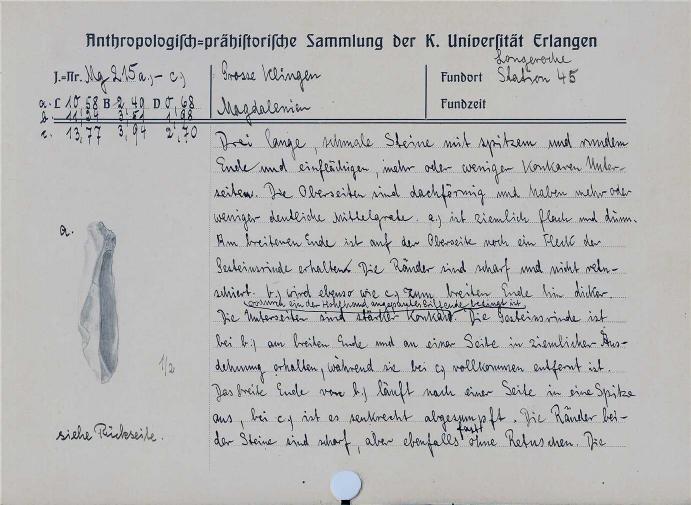 Anthropologisch=prähistorische Sammlung der K. Universität Erlangen
J.=Nr. Mg 215 a,- c, Grosse Klingen Fundort Longeroche Station 45
a. L 10,58 B 2,49 D 0,68 Magdalenien Fundzeit
b. 11,54 3,51 1,98
c. 13,77 3,94 2,70
Drei lange, schmale Steine mit spitzem und rundem
Ende und einflächigen, mehr oder weniger konkaven Unter-
seiten. Die Oberseiten sind dachförmig und haben mehr oder
weniger deutliche Mittelgrate. a, ist ziemlich flach und dünn.
Am breiteren Ende ist auf der Oberseite noch ein Fleck der
Gesteinsrinde erhalten. Die Ränder sind scharf und nicht retu-
schiert. b, wird ebenso wie c, zum breiten Ende hin dicker.
wodurch ein der Hohlhand angepasstes bedingt ist
Die Unterseiten sind stärker konkav. Die Gesteinsrinde ist
bei b, am breiten Ende und an einer Seite in ziemlicher Aus-
dehnung erhalten, während sie bei c, vollkommen entfernt ist.
Das breite Ende von b, läuft nach einer Seite in eine Spitze
aus, bei c, ist es senkrecht abgestumpft. Die Ränder bei-
der Steine sind scharf, aber ebenfalls fast ohne Retuschen. Die
a.
1/2
siehe Rückseite.